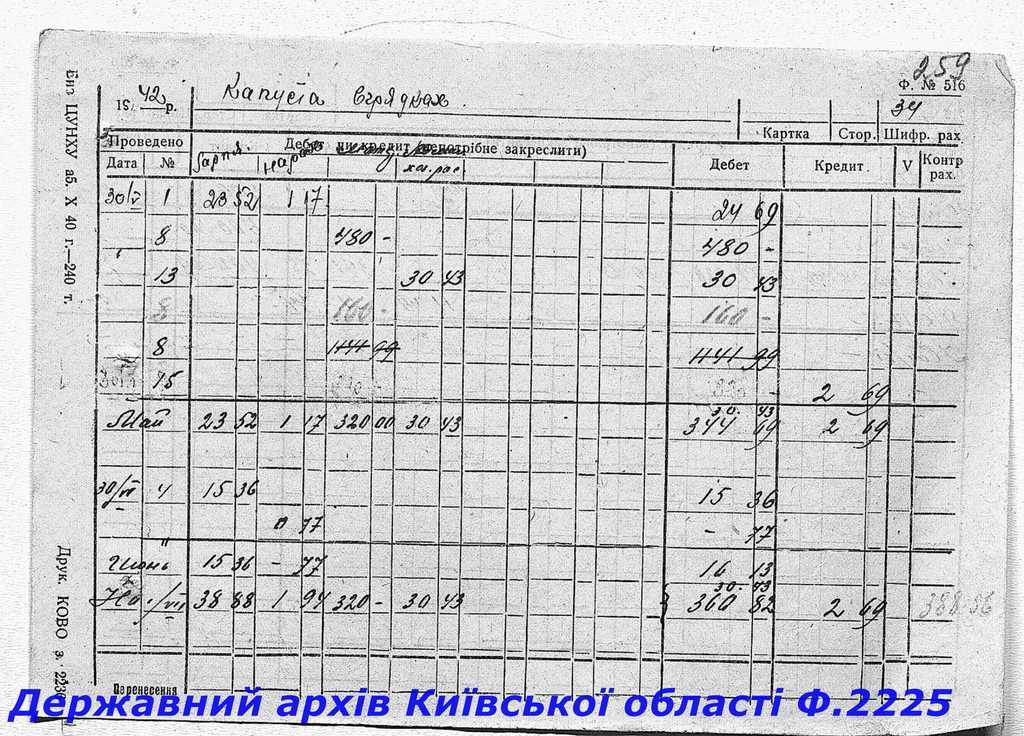 259
Ф. № 516
1942 р. Капуста в грядках. 34
Картка Стор. Шифр. рах
Проведено Дебет чи кредит (непотрібне закреслити) Дебет Кредит. V Контр рах.
Дата №
30/V 1 23 52 1 17 24 69
" 8 480 - 480 -
13 30 43 30 43
8 160 - 160 -
8 1141 99 1141 99
15 2 69
30. 43
Май 23 52 1 17 320 00 30 43 344 69 2 69
30/VI 4 15 36 15 36
0 77 - 77
Июнь 15 36 - 77 16 13
30. 43
На 1/VII 38 88 1 94 320 - 30 43 360 82 2 69 388 56
Перенесення
Биз ЦУНХУ аб. X 40 г.—240 т.
Друк. КОВО з. 223
Державний архів Київської області Ф.2225